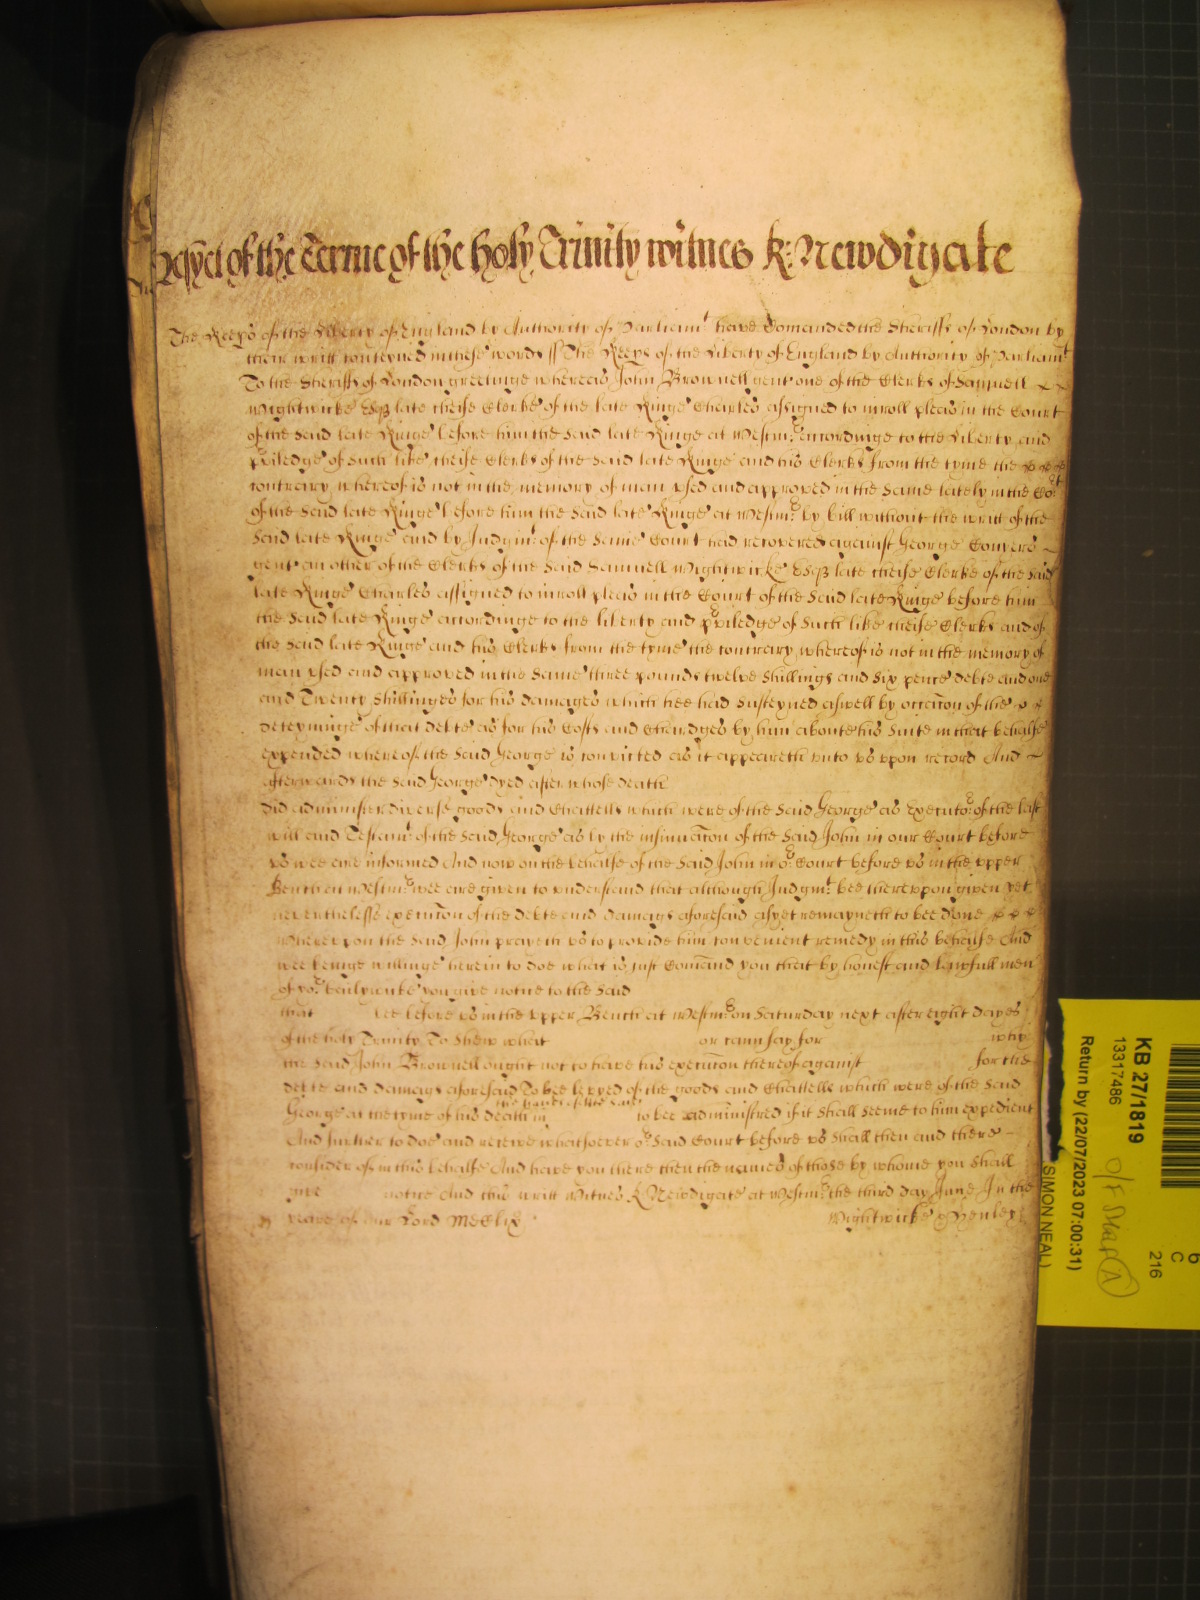 yet of the Terme of the holy Trinity witnes R: Newdigate
The Keeps of the Liberty of England by Authority of Parliamt have Comanded the Sheriffs of London by
their writt conteyned in these words ss The Keeps of the Liberty of England by Authority of Parliamt
To the Sheriffs of London greetinge whereas John Brownell gent one of the Clerks of Samuell
Wightwicke Esqr late cheife Clerke of the late Kinge Charles assigned to inroll pleas in the Court
of the said late Kinge before him the said late Kinge at Westmr accordinge to the Liberty and
priviledge of such like cheife Clerks of the said late Kinge and his Clerks from the tyme the
contrary whereof is not in the memory of man vsed and approved in the same lately in the Cort
of the said late Kinge before him the said late Kinge at Westmr by bill without the writt of the
said late Kinge and by Judgmt of the same Court had recovered against George Conyers
gent an other of the Clerks of the said Samuell Wightwicke Esqr late cheife Clerke of the said
late Kinge Charles assigned to inroll pleas in the Court of the said late Kinge before him
the said late Kinge accordinge to the liberty and priviledge of such like cheife Clerks and of
the said late Kinge and his Clerks from the tyme the contrary whereof is not in the memory of
man vsed and approved in the same three pounds twelve shillings and six pence debte and one
and Twenty shillinges for his damages which hee had susteyned aswell by occacon of the
deteyninge of that debte as for his Costs and Chardges by him aboute his suite in that behalfe
expended whereof the said George is convicted as it appeareth vnto vs vpon record And
afterwards the said George dyed after whose death
did administer diverse goods and Chattells which were of the said George as Executor of the last
will and Testamt of the said George as by the insinuacon of the said John in our Court before
vs wee are informed And now on the behalfe of the said John in or Court before vs in the vpper
Bench at Westmr wee are given to vnderstand that although Judgmt bee therevpon given yet
neverthelesse execucon of the debte and damags aforesaid as yet remayneth to bee done
wherevpon the said John prayeth vs to provide him convenient remedy in this behalfe And
wee beinge willinge herein to doe what is just Comand you that by honest and lawfull men
of yor Baylywicke you give notice to the said
that bee before vs in the vpper Bench at Westmr on Saturday next after eight dayes
of the holy Trinity To shew what or cann say for why
the said John Brownell ought not to have his execucon thereof against for the
debte and damags aforesaid To bee levyed of the goods and Chattells which were of the said
the hands of the said
George at the tyme of his death in to bee administred if it shall seeme to him expedient
And further to doe and receive whatsoever or said Court before vs shall then and there
consider of in this behalfe And have you there then the names of those by whome you shall
give notice And this writt Witnes R Newdigate at Westmr the third day June In the
yeare of our Lord MDClix Wightwicke & Henley
KB 27/1819
13317486
Return by (22/07/2023 07:00:31)
SIMON NEAL)
C
216
A